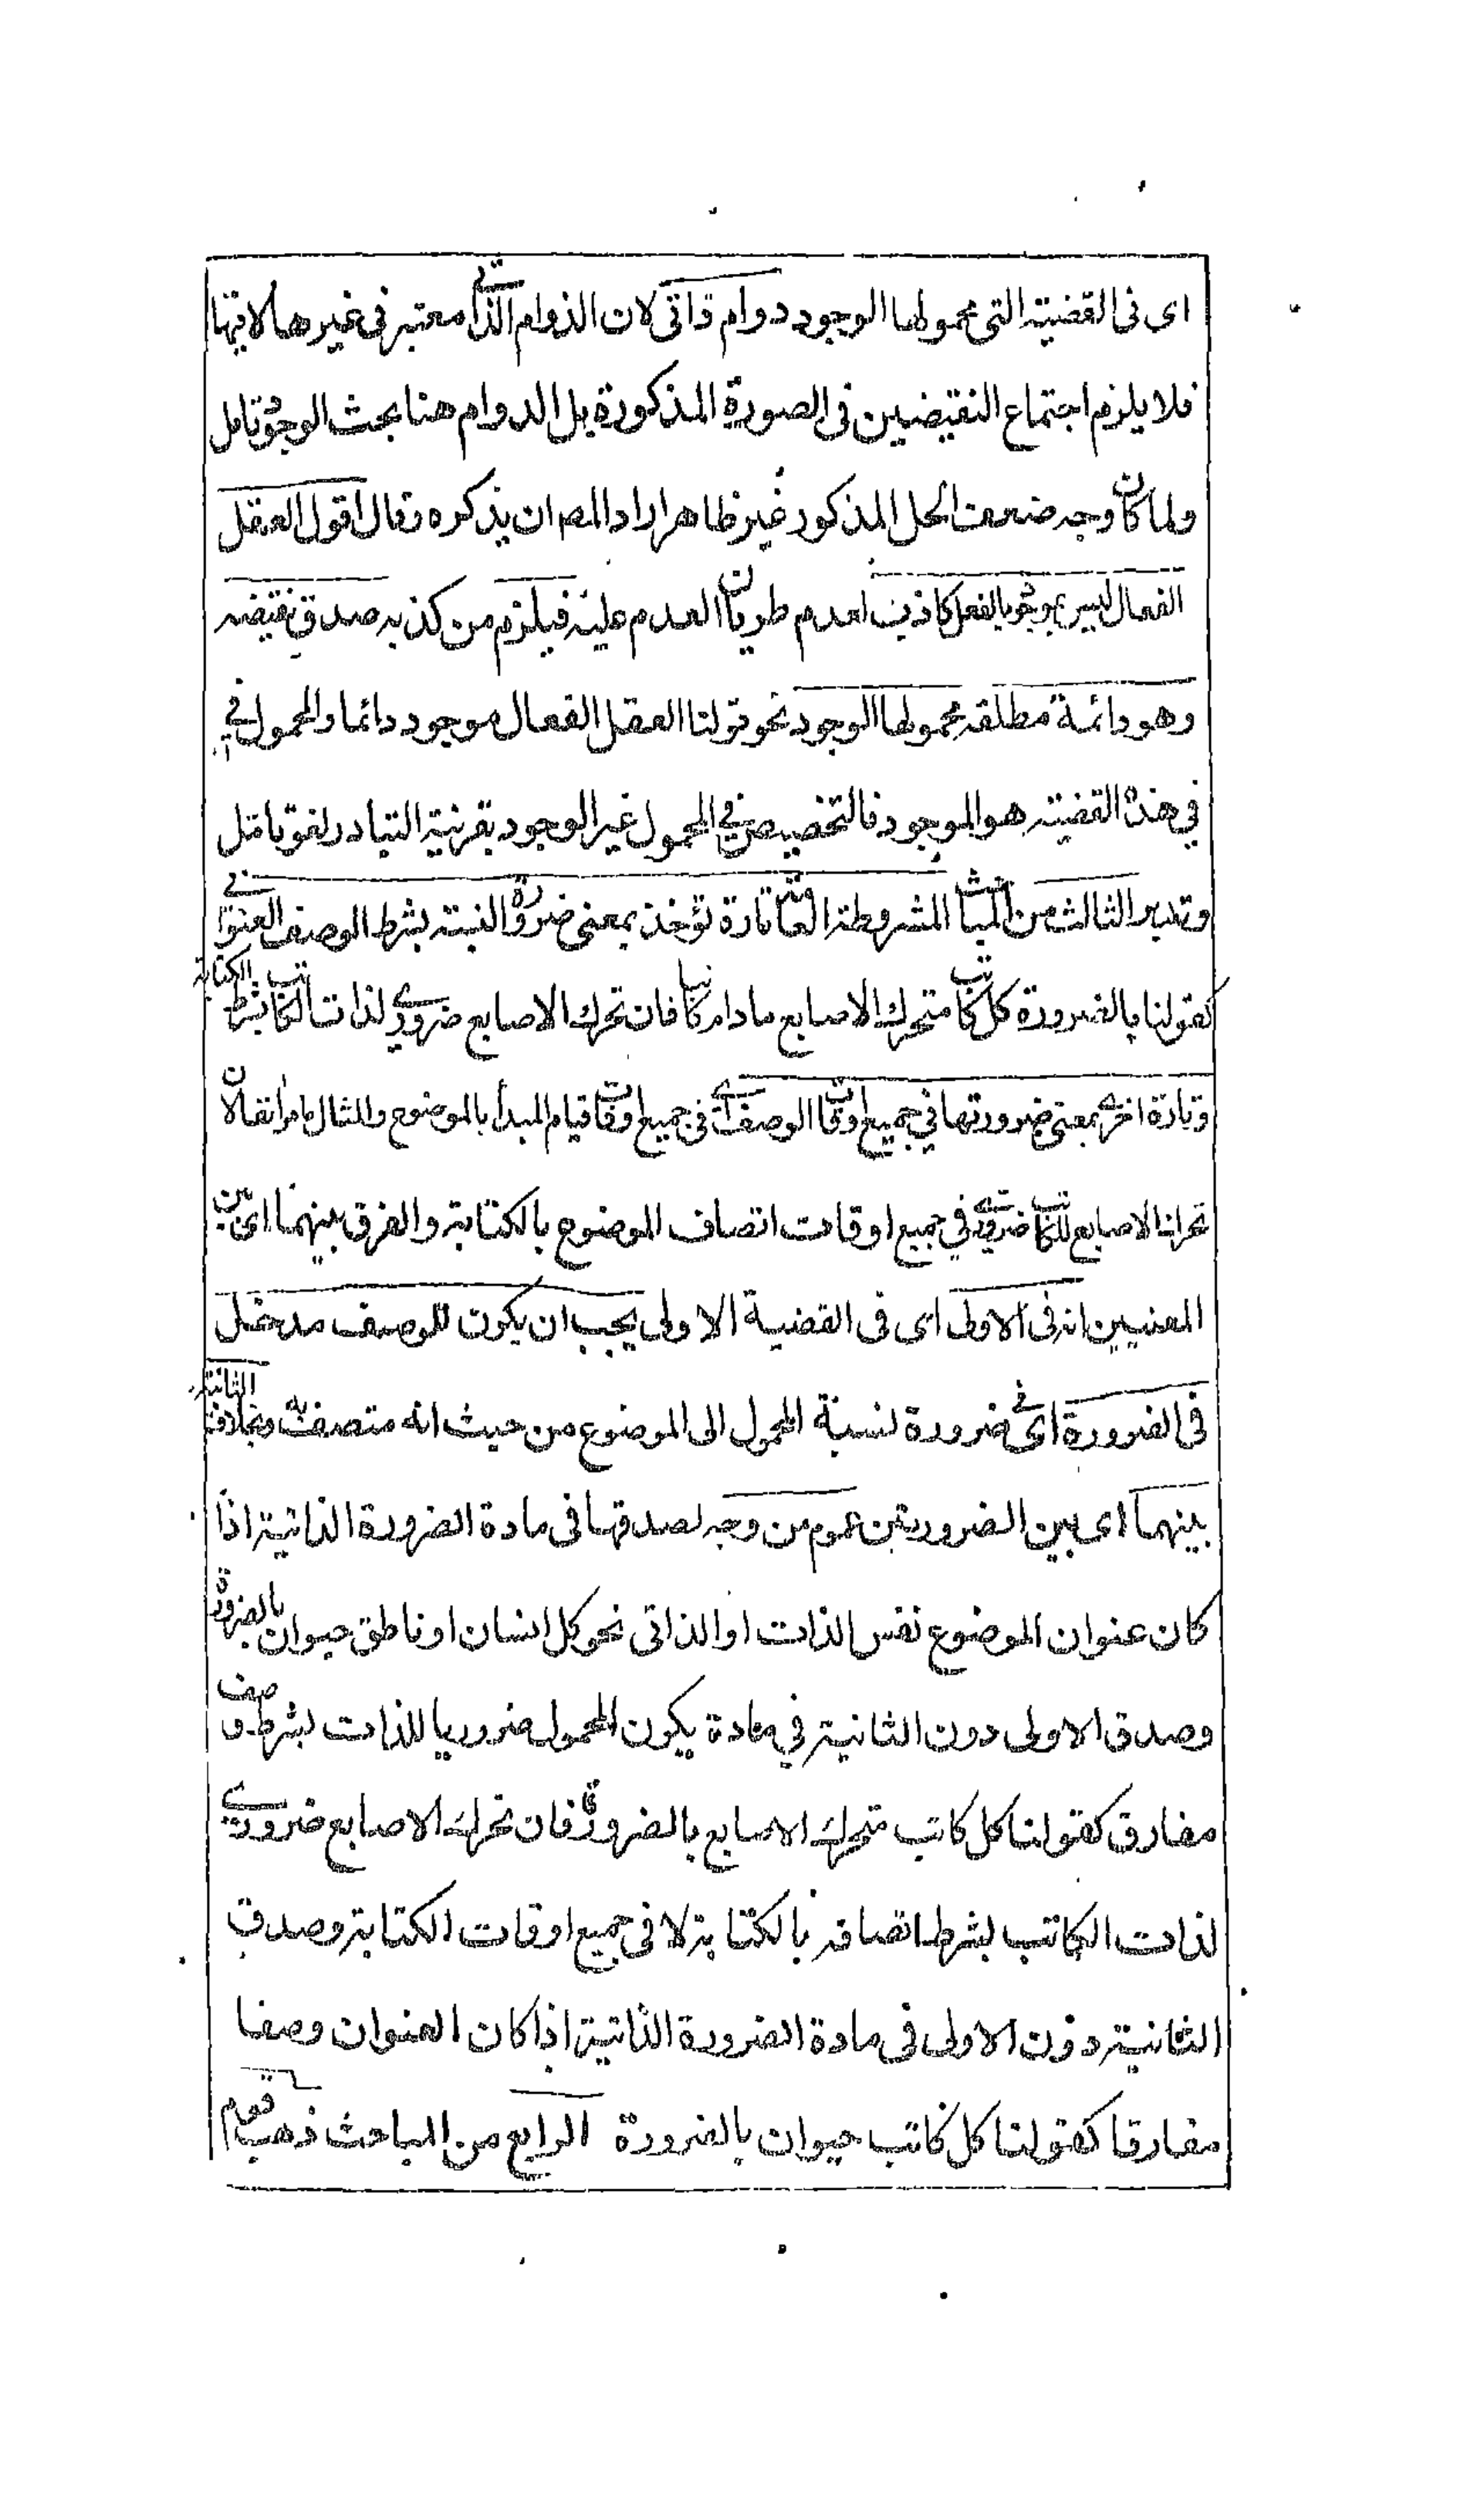 اى فى القضية التى محمولها الوجود دوام ذاتى لان الدوام الذاتى معتبر فى غيرها لا فيها
فلا يلزم اجتماع النقيضين فى الصورة المذكورة بل الدوام هنا بحث الوجود تامل
ولما كان وجه ضعف الحل المذكور غير ظاهر اراد المصه ان يذكره فقال اقول العقل
الفعال ليس بموجود بالفعل كاذب لعدم طريان العدم عليه فيلزم من كذبه صدق نقيضه
وهو دائمة مطلقه محمولها الوجود نحو قولنا العقل الفعال موجود دائما والمحمول فى
فى هذه القضية هو الموجود فالتخصيص فى المحمول غير الوجود بقرنية التبادر لغو تامل
وتدير الثالث من المباحث المشروطة العامة تارة تؤخذ بمعنى ضرورة النسبة بشرط الوصف العنوانى
كقولنا بالضرورة كل كاتب متحرك الاصابع مادام كاتبا فان تحرك الاصابع ضرورى لذات الكاتب بشرط الكتابة
وتارة اخرى بمعنى ضرورتها فى جميع اوقات الوصف اى فى جميع اوقات قيام المبدأ بالموضوع والمثال ما مر انفا لان
تحرك الاصابع للكاتب ضرورى فى جميع اوقات اتصاف الموضوع بالكتابة والفرق بينهما اى بين
المعنيين انه فى الاولى اى فى القضية الاولى يجب ان يكون للوصف مدخل
فى الضرورة اى فى ضرورة نسبة المحمول الى الموضوع من حيث انه متصف به وبخلاف الثانية
بينهما اى بين الضروريتين عموم من وجه لصدقها فى مادة الضرورة الذاتية اذا
كان عنوان الموضوع نفس الذات او الذاتى نحو كل انسان او ناطق حيوان بالضرورة
وصدق الاولى دون الثانية فى مادة يكون المحمول ضروريا للذات بشرط وصف
مفارق كقولنا كل كاتب متحرك الاصابع بالضرورة فان تحرك الاصابع ضرورى
لذات الكاتب بشرط اتصافه بالكتابة لا فى جميع اوقات الكتابة وصدق
الثانية دون الاولى فى مادة الضرورة الذاتية اذا كان العنوان وصفا
مفارقا كقولنا كل كاتب حيوان بالضرورة الرابع من المباحث ذهب قوم